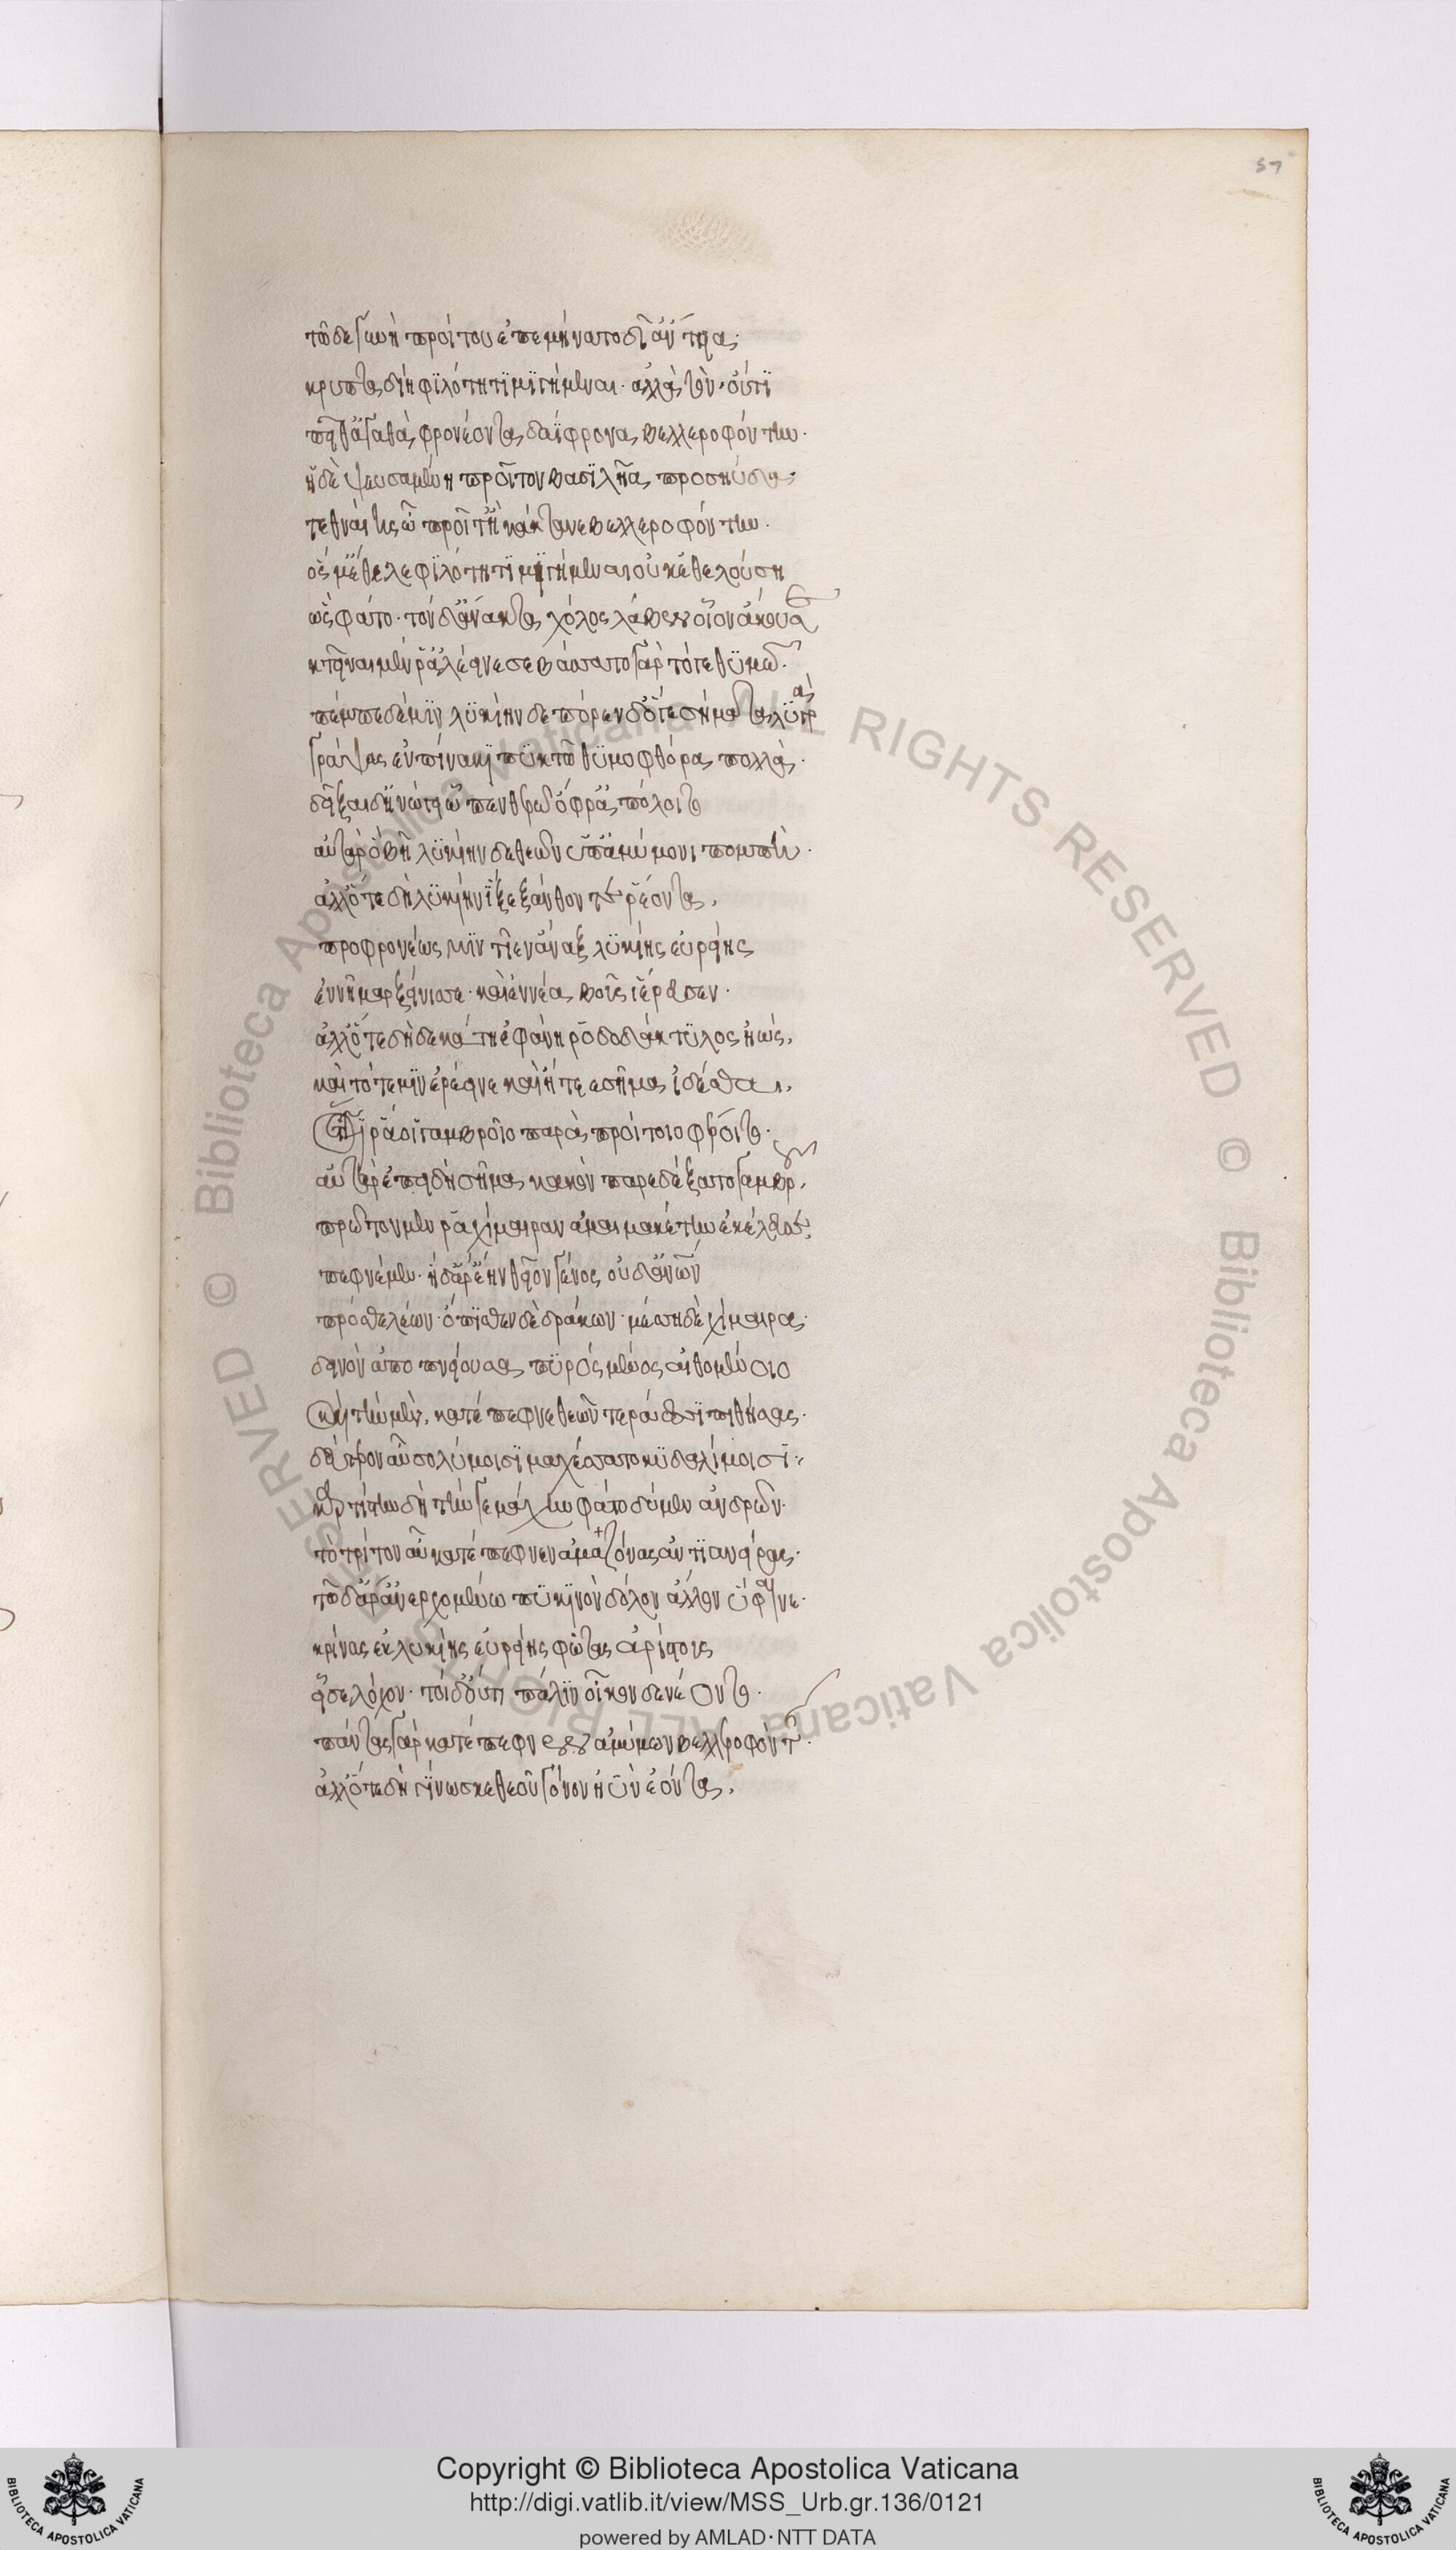 57
τῶ δὲ γυνὴ προίτου ἐπεμήνατο δῖ' ἄντεια·
κρυπταδίη φιλότητι μιγήμεναι· ἀλλὰ τὸν οὔτι
πεῖθ' ἀγαθὰ φρονέοντα δαΐφρονα βελλεροφόντην·
ἡ δὲ ψευσαμένη προῖτον βασιλῆα προσηύδα·
τεθναίης ὦ προῖτ' ἢ κάκτανε βελλεροφόντην·
ὅς μ' ἔθελε φιλότητι μιγήμεναι οὐκ ἐθελούση
ὣς φάτο· τὸν δ' ἄνακτα χόλος λάβεν οἷον ἄκουσε
κτεῖναι μέν ῥ' ἀλέεινε σεβάσσατο γὰρ τότε θυμῶ·
πέμπε δέ μιν λυκίην δὲ πόρεν δ' ὅτε σήματα λυγρὰ
γράψας ἐν πίνακι πυκτῶ θυμοφθόρα πολλὰ·
δεῖξαι δ' ἠνώγει ᾧ πενθερῷ ὄφρ' ἀπόλοιτο
αὐτὰρ ὁ βῆ λυκίην δὲ θεῶν ὑπ' ἀμύμονι πομπῇ·
ἀλλ' ὅτε δὴ λυκίην ἷξε ξάνθον τε ῥέοντα,
προφρονέως μιν τῖεν ἄναξ λυκίης εὐρείης
ἐννῆμαρ ξείνισσε· καὶ ἐννέα βοῦς ἱέρευσεν·
ἀλλ' ὅτε δὴ δεκάτη ἐφάνη ῥοδοδάκτυλος ἠώς,
καὶ τότε μιν ἐρέεινε καὶ ἤτεε σῆμα ἰδέσθαι,
ὅττι ῥά οἱ γαμβροῖο παρὰ προίτοιο φέροιτο·
αὐτὰρ ἐπειδὴ σῆμα κακὸν παρεδέξατο γαμβροῦ,
πρῶτον μέν ῥα χίμαιραν ἀμαιμακέτην ἐκέλευσε
πεφνέμεν· ἡ δ' ἄρ' ἔην θεῖον γένος οὐδ' ἀνθρώπων
πρόσθε λέων· ὄπιθεν δὲ δράκων· μέσση δὲ χίμαιρα·
δεινὸν ἀποπνείουσα πυρὸς μένος αἰθομένοιο
καὶ τὴν μὲν, κατέπεφνε θεῶν τεράεσσι πιθήσας·
δεύτερον αὖ σολύμοισι μαχέσσατο κυδαλίμοισι·
καρτίστην δὴ τήν γε μάχην φάτο δύμεν ἀνδρῶν·
τὸ τρίτον αὖ κατέπεφνεν ἀμαζόνας ἀντιανείρας·
τῶ δ' ἄρ' ἀνερχομένω πυκινὸν δόλον ἄλλον ὕφαινε·
κρίνας ἐκ λυκίης εὐρείης φῶτας ἀρίστους
εἷσε λόχον· τοὶ δ' οὔτι πάλιν οἶκον δε νέοντο·
πάντας γὰρ κατέπεφνεν ἀμύμων βελλεροφόντης·
ἀλλ' ὅτε δὴ γίνωσκε θεοῦ γόνον ἠῢν ἐόντα,
Copyright © Biblioteca Apostolica Vaticana
http://digi.vatlib.it/view/MSS_Urb.gr.136/0121
powered by AMLAD·NTT DATA